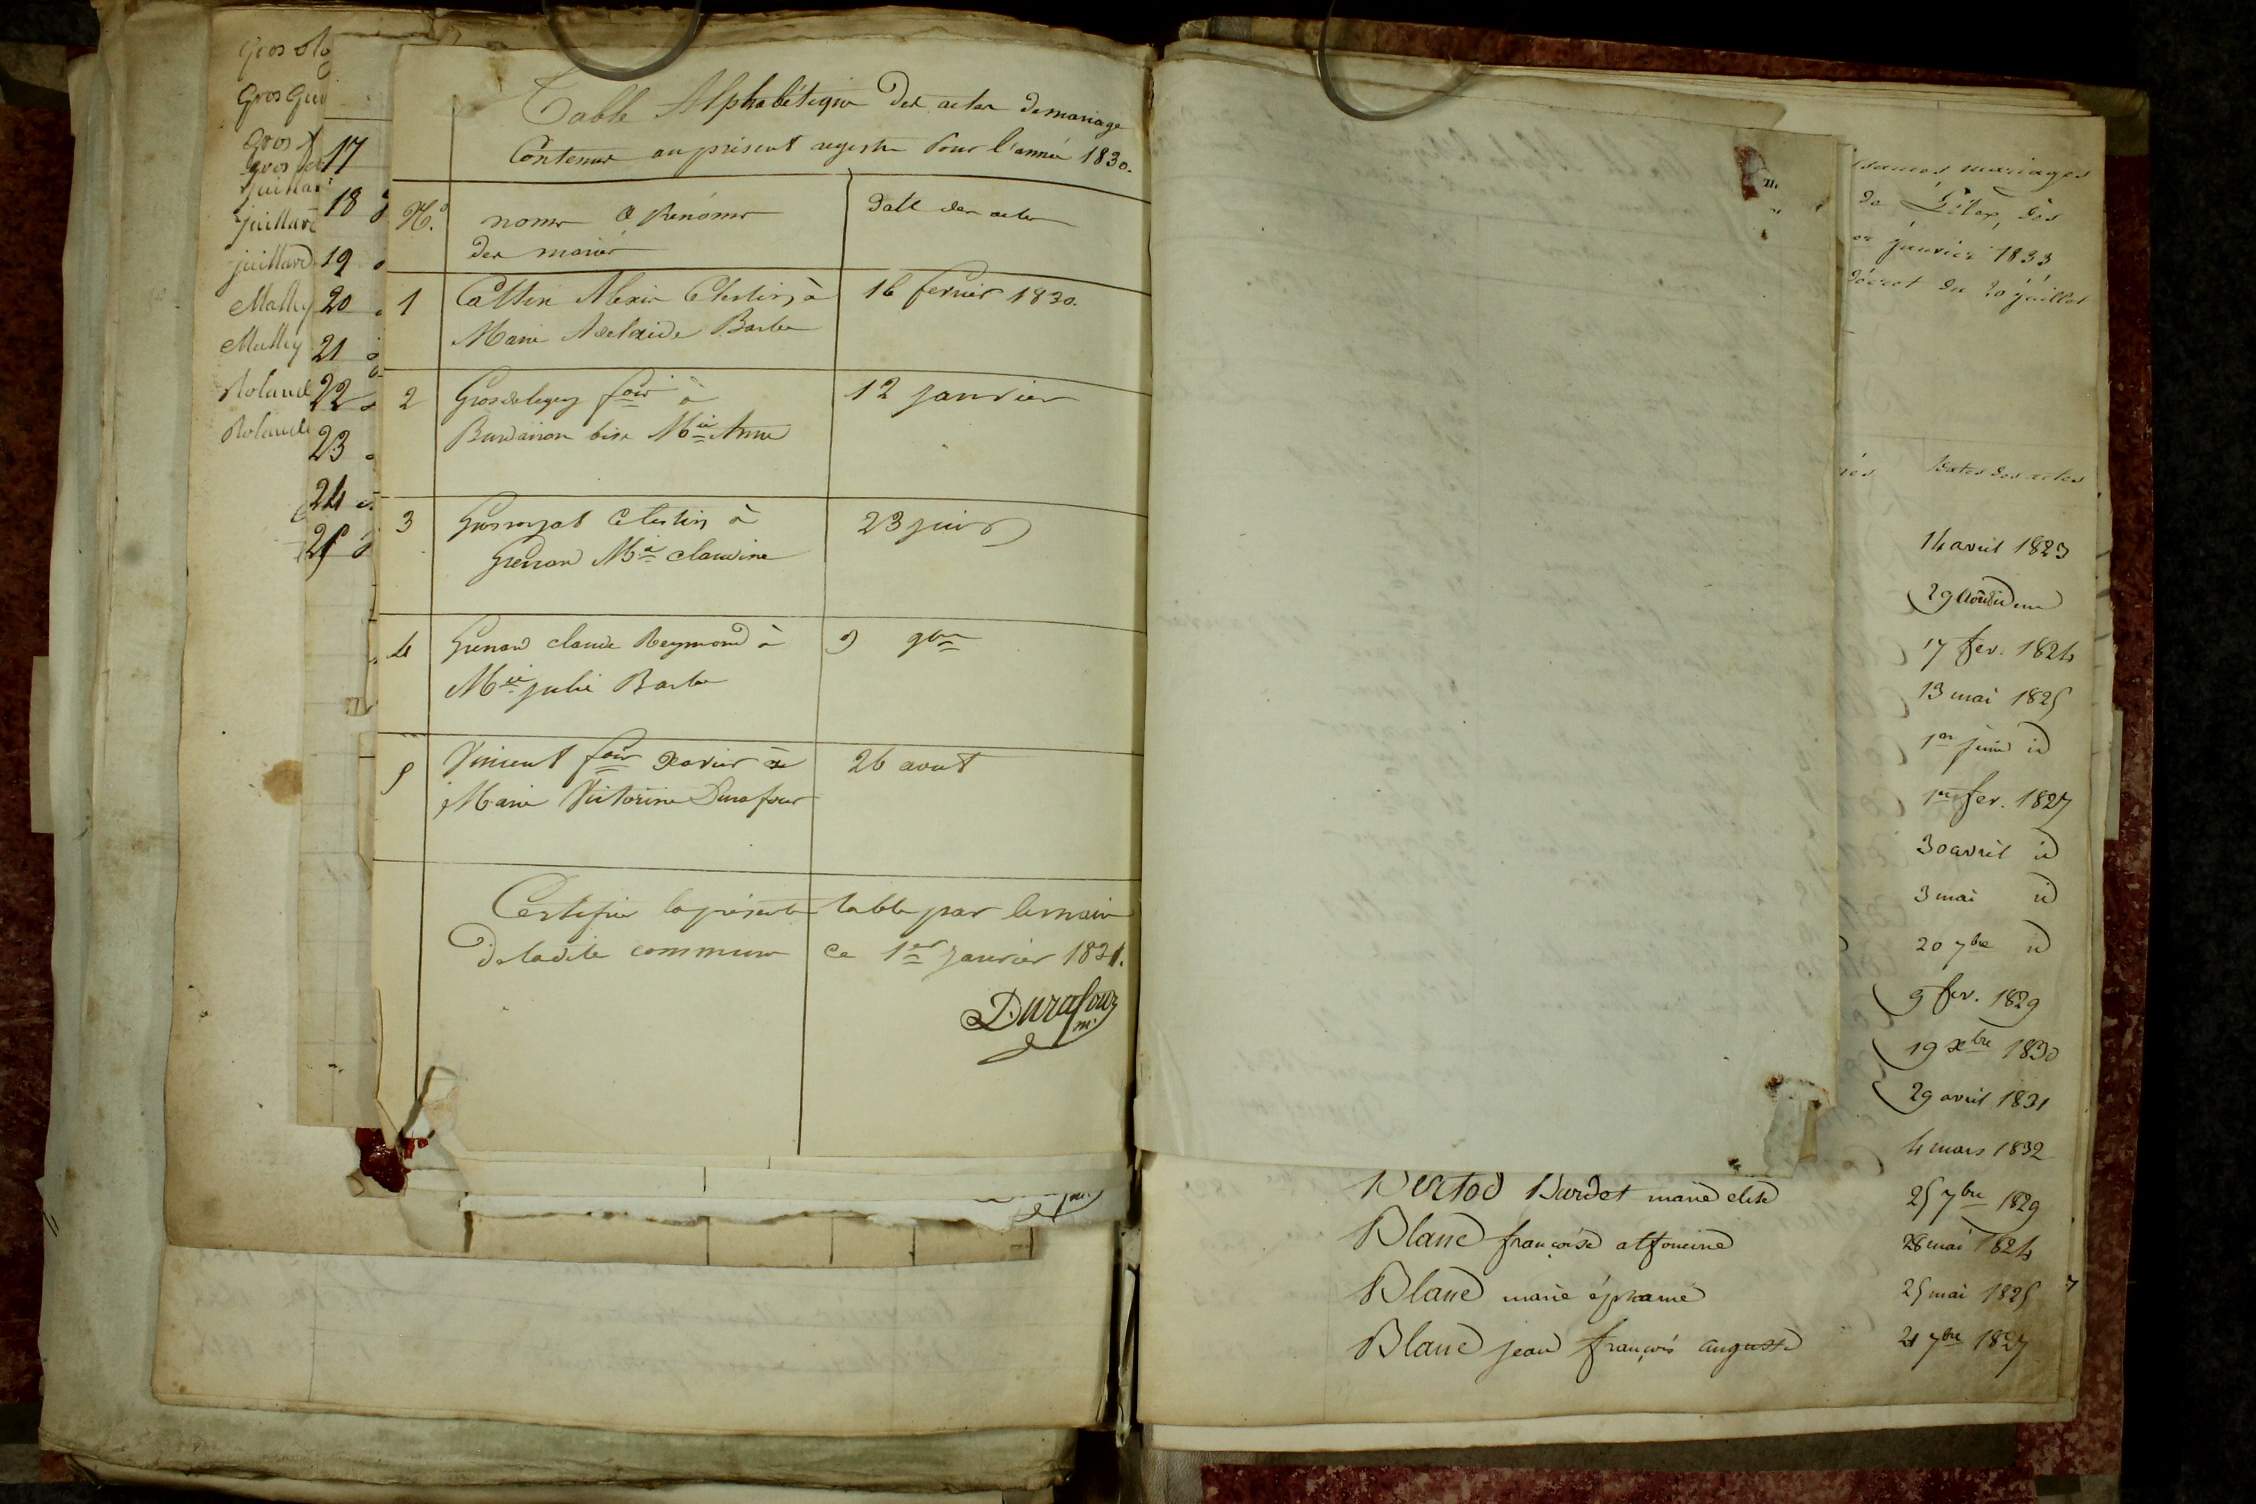 Gros
Gros Gui
Gros
Gros
Juillard
Juillard
Juillard
Mathy
Mathy
Roland
Roland
17
18
19
20
21
22
23
24
25
Table Alphabétique des actes de mariage
Contenus au présent registre Pour l'année 1830.
N.o noms & prénoms date des actes
des mariés
1 Cattin Alexis Célestin à 16 fevrier 1830.
Marie Adelaide Barbe
2 Grosdelegey fois à 12 janvier
Burdairon bise Mie Anne
3 Grosroyat Celestin à 23 juin
Grenard Mie claudine
4 Grenard claude Reymond à 9 9bre
Mie julie Barbe
5 Vincent fois Xavier à 26 aout
Marie Victorine Durafour
Certifiée la présente table par le maire
de ladite commune ce 1er janvier 1831.
Durafour
mariages
de des
janvier 1833
décret du 20 juillet
Dates des actes
14 avril 1823
29 Août idem
17 fev. 1824
13 mai 1825
1er juin id
1er fev. 1827
30 avril id
3 mai id
20 7bre id
9 fev. 1829
19 Xbre 1830
29 avril 1831
4 mars 1832
Bertod Burdet marie elise 25 7bre 1829
Blanc françoise alfonsine 28 mai 1824
Blanc marie 25 mai 1825
Blanc jean françois auguste 21 7bre 1827